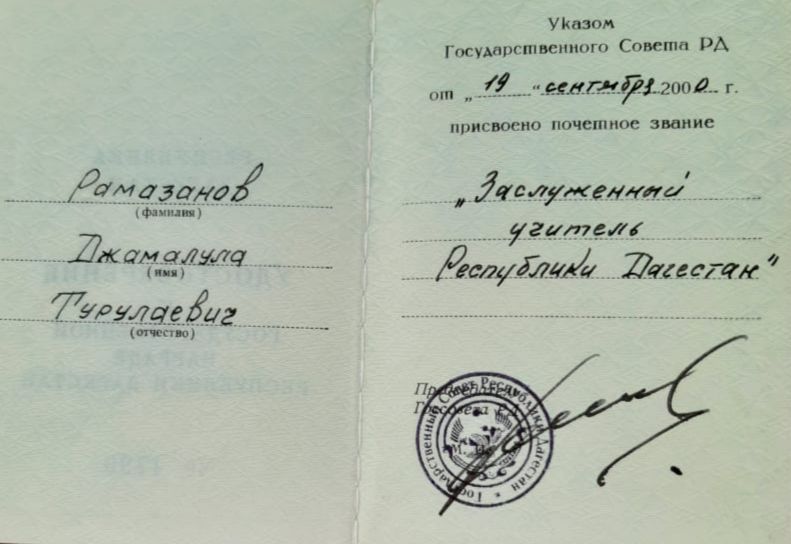 Рамазанов
(фамилия)
Джамалула
(имя)
Турулаевич
(отчество)
Указом
Государственного Совета РД
от „19“ сентября 2000 г.
присвоено почетное звание
„Заслуженный
учитель
Республики Дагестан"
Председатель
Госсовета РД
М. П.
Государственный Совет Республики Дагестан *